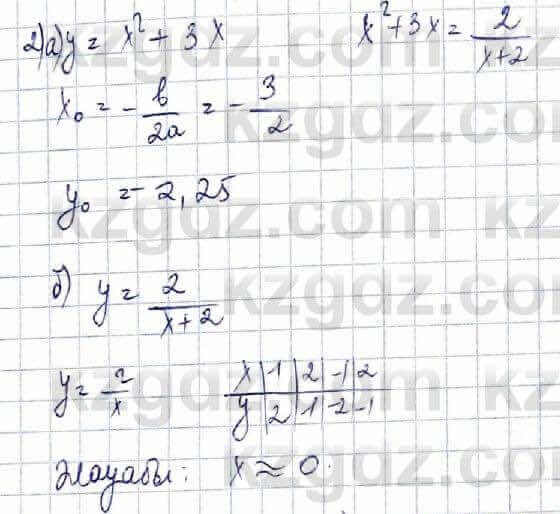 2)а) y = x² + 3x     x² + 3x = 2/(x+2)
x₀ = - b/2a = - 3/2
y₀ = - 2,25
б) y = 2/(x+2)
y = 2/x     x | 1 | 2 | -1 | 2
y | 2 | 1 | -2 | -1
Жауабы: x ≈ 0.
kzgdz.com
kzgdz.com
kzgdz.com
kzgdz.com
kzgdz.com